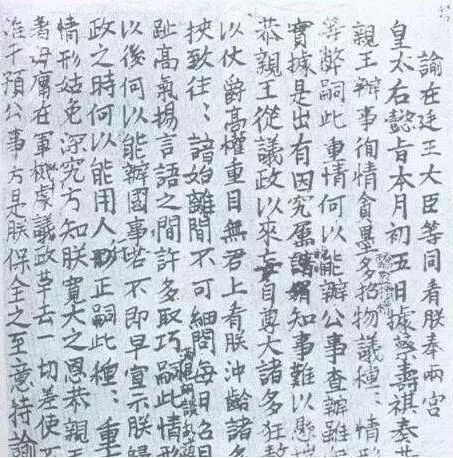 諭在廷王大臣等同看朕奉兩宮
皇太后懿旨本月初五日據蔡壽祺奏
親王辦事徇情貪墨多招物議種:情形
等弊嗣此重情何以能辦公事查辦雖
實據是出有因究屬知事難以懸
恭親王從議政以來妄自尊大諸多狂
以仗爵高權重目無君上看朕沖齡諸
挾致往:諳始離間不可細問每日召
趾高氣揚言語之間許多取巧嗣此情形
以後何以能辦國事若不即早宣示朕歸
政之時何以能用人行正嗣此種:重
情形姑免深究方知朕寬大之恩恭親王
著毋庸在軍機處議政革去一切差使不
准干預公事方是朕保全之至意特諭